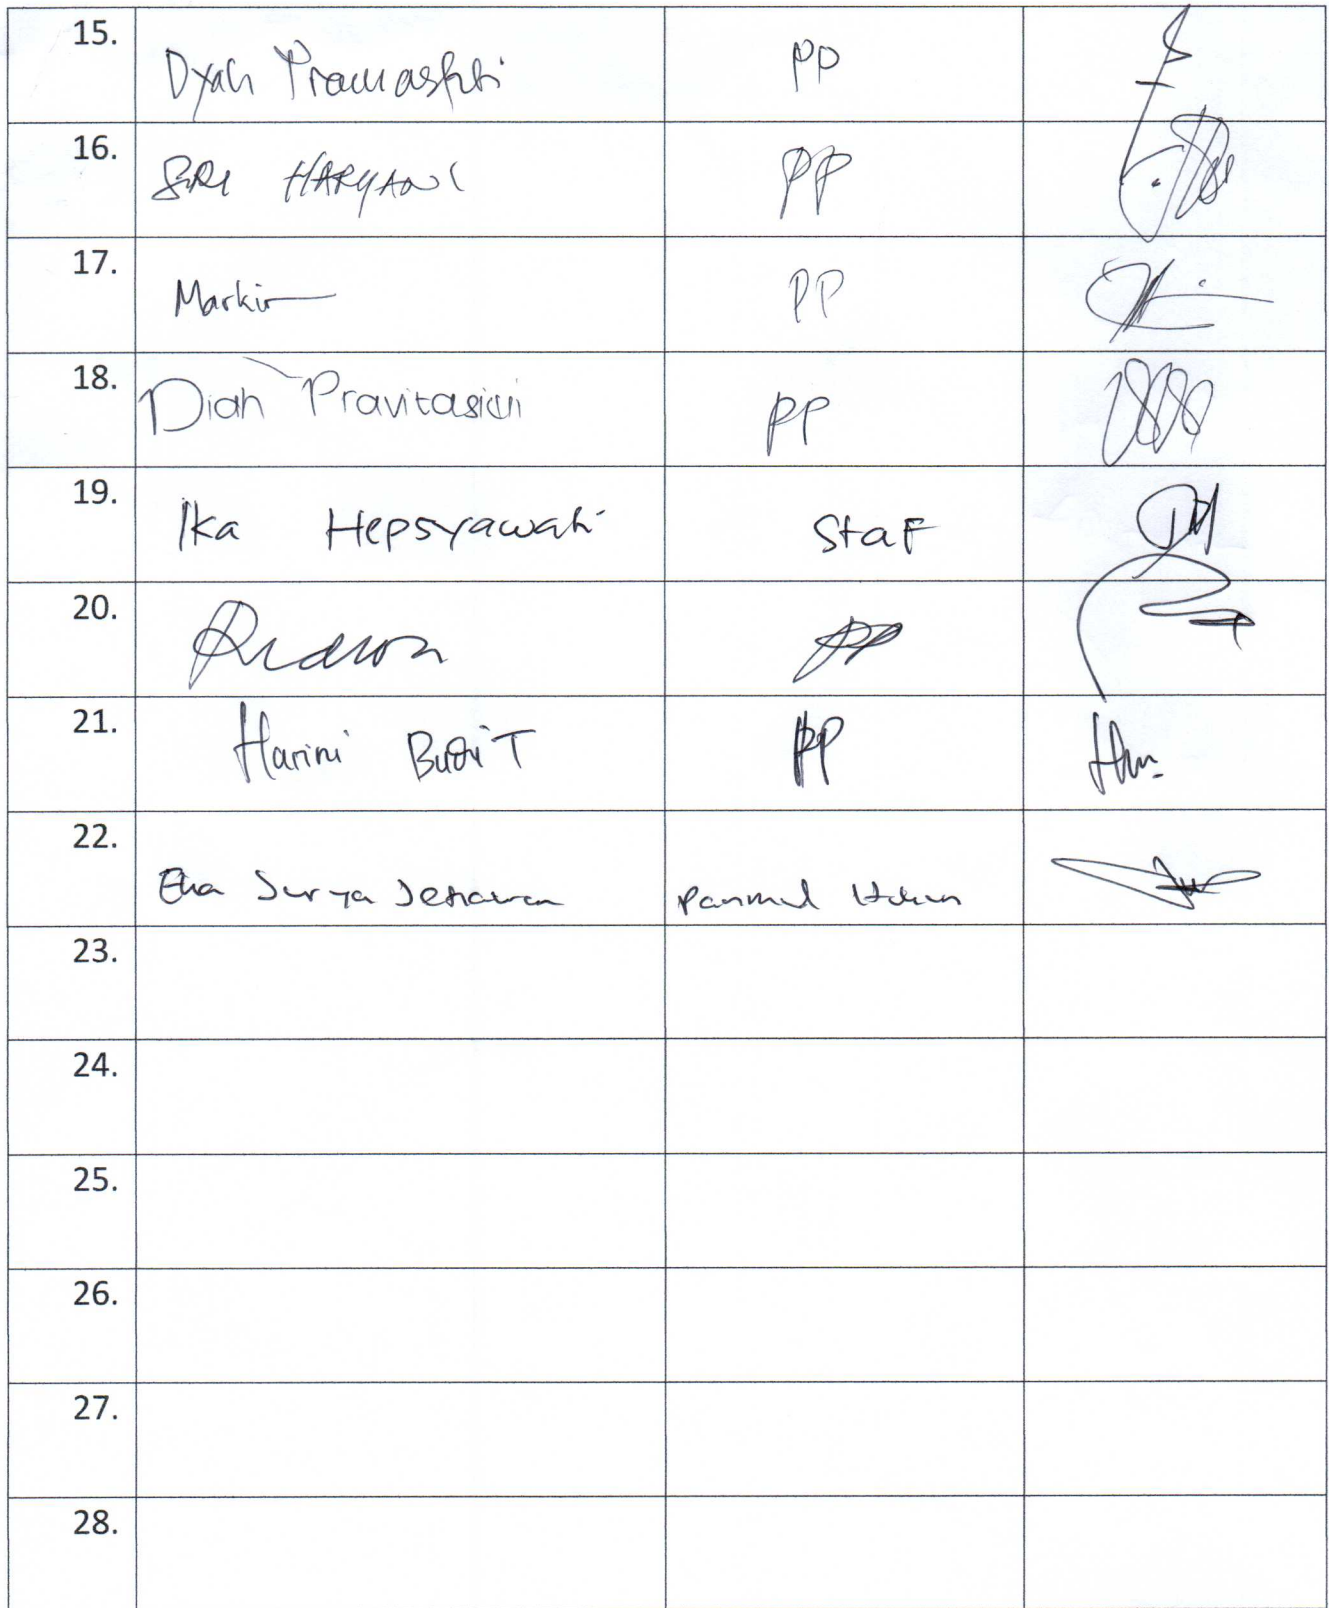 15. Dyah Pramastuti PP
16. SRI HARYANI PP
17. Markin PP
18. Diah Pravitasari PP
19. Ika Hepsyawati Staf
20. PP
21. Harini Budi T PP
22. Eka Surya Setiawan Panmud Hukum
23.
24.
25.
26.
27.
28.